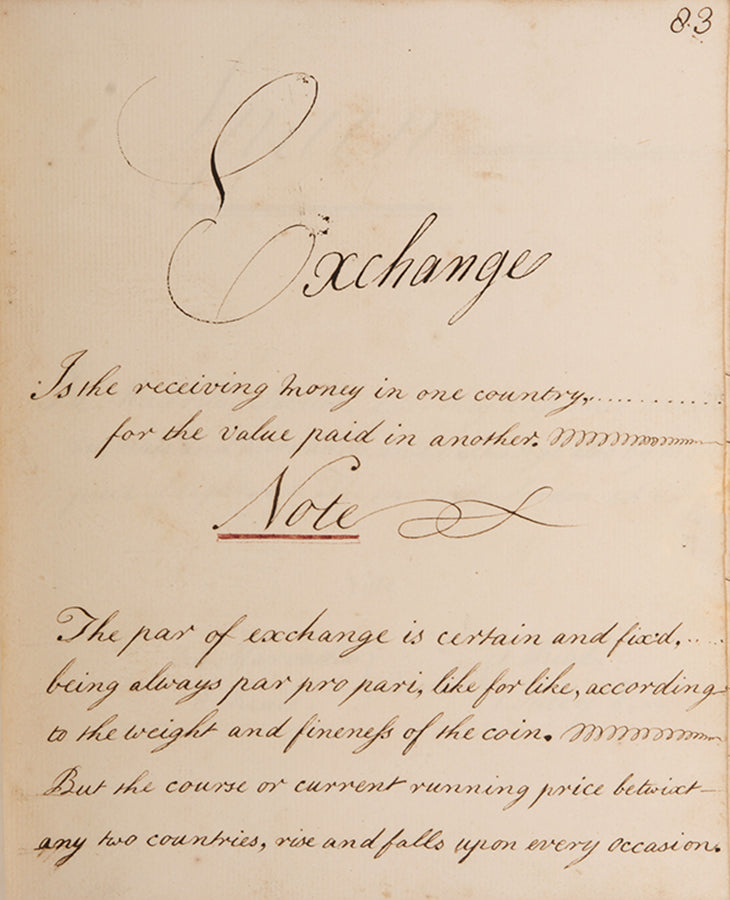 83
Exchange
Is the receiving money in one country,............
for the value paid in another.
Note
The par of exchange is certain and fix'd,....
being always par pro pari, like for like, according
to the weight and fineneſs of the coin.
But the course or current running price betwixt
any two countries, rise and falls upon every occasion.